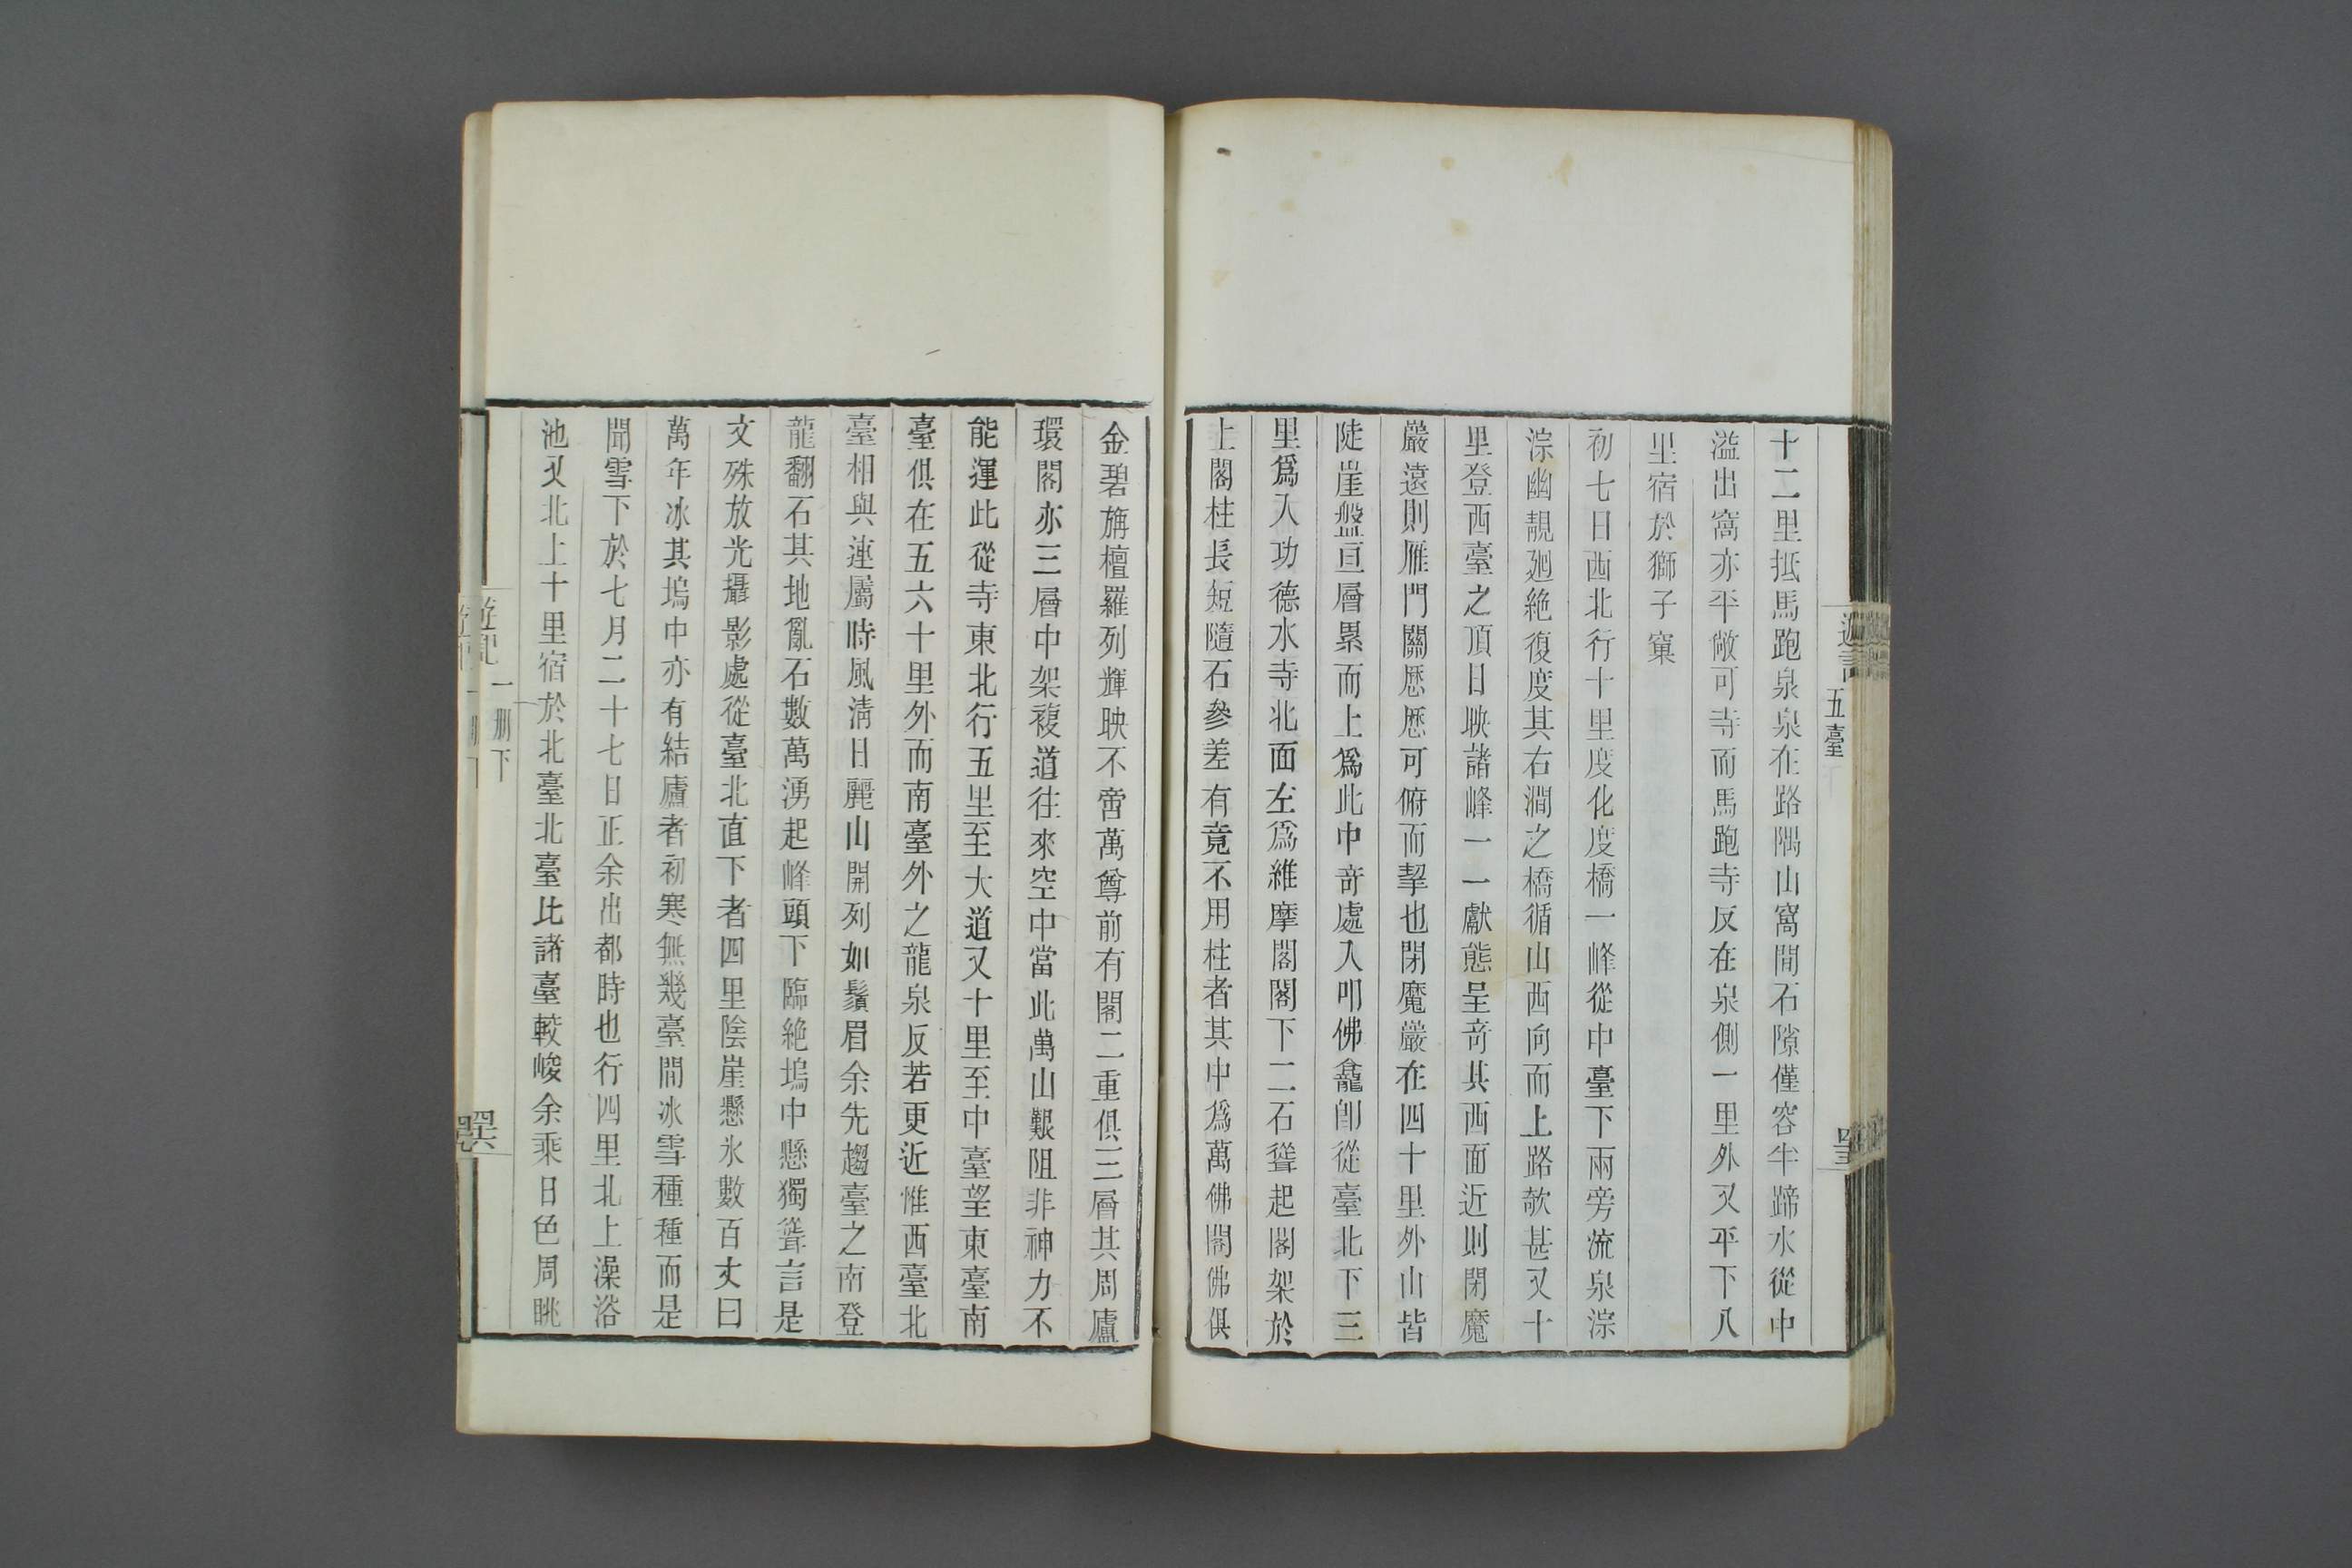 十二里抵馬跑泉泉在路隅山窩間石隙僅容半蹄水從中
溢出窩亦平敞可寺而馬跑寺反在泉側一里外又平下八
里宿於獅子窠
初七日西北行十里度化度橋一峰從中臺下兩旁流泉淙
淙幽靚迥絕復度其右澗之橋循山西向而上路欹甚又十
里登西臺之頂日映諸峰一一獻態呈奇其西面近則閉魔
巖遠則雁門關歷歷可俯而挈也閉魔巖在四十里外山皆
陡崖盤亘層累而上爲此中奇處入叩佛龕卽從臺北下三
里爲八功德水寺北面左爲維摩閣閣下二石聳起閣架於
上閣柱長短隨石參差有竟不用柱者其中爲萬佛閣佛俱
金碧旃檀羅列輝映不啻萬尊前有閣二重俱三層其周廬
環閣亦三層中架複道往來空中當此萬山艱阻非神力不
能運此從寺東北行五里至大道又十里至中臺望東臺南
臺俱在五六十里外而南臺外之龍泉反若更近惟西臺北
臺相與連屬時風清日麗山開列如鬚眉余先趨臺之南登
龍翻石其地亂石數萬湧起峰頭下臨絕塢中懸獨聳言是
文殊放光攝影處從臺北直下者四里陰崖懸氷數百丈曰
萬年冰其塢中亦有結廬者初寒無幾臺間冰雪種種而是
聞雪下於七月二十七日正余出都時也行四里北上澡浴
池又北上十里宿於北臺北臺比諸臺較峻余乘日色周眺
五臺
遊記
一册下